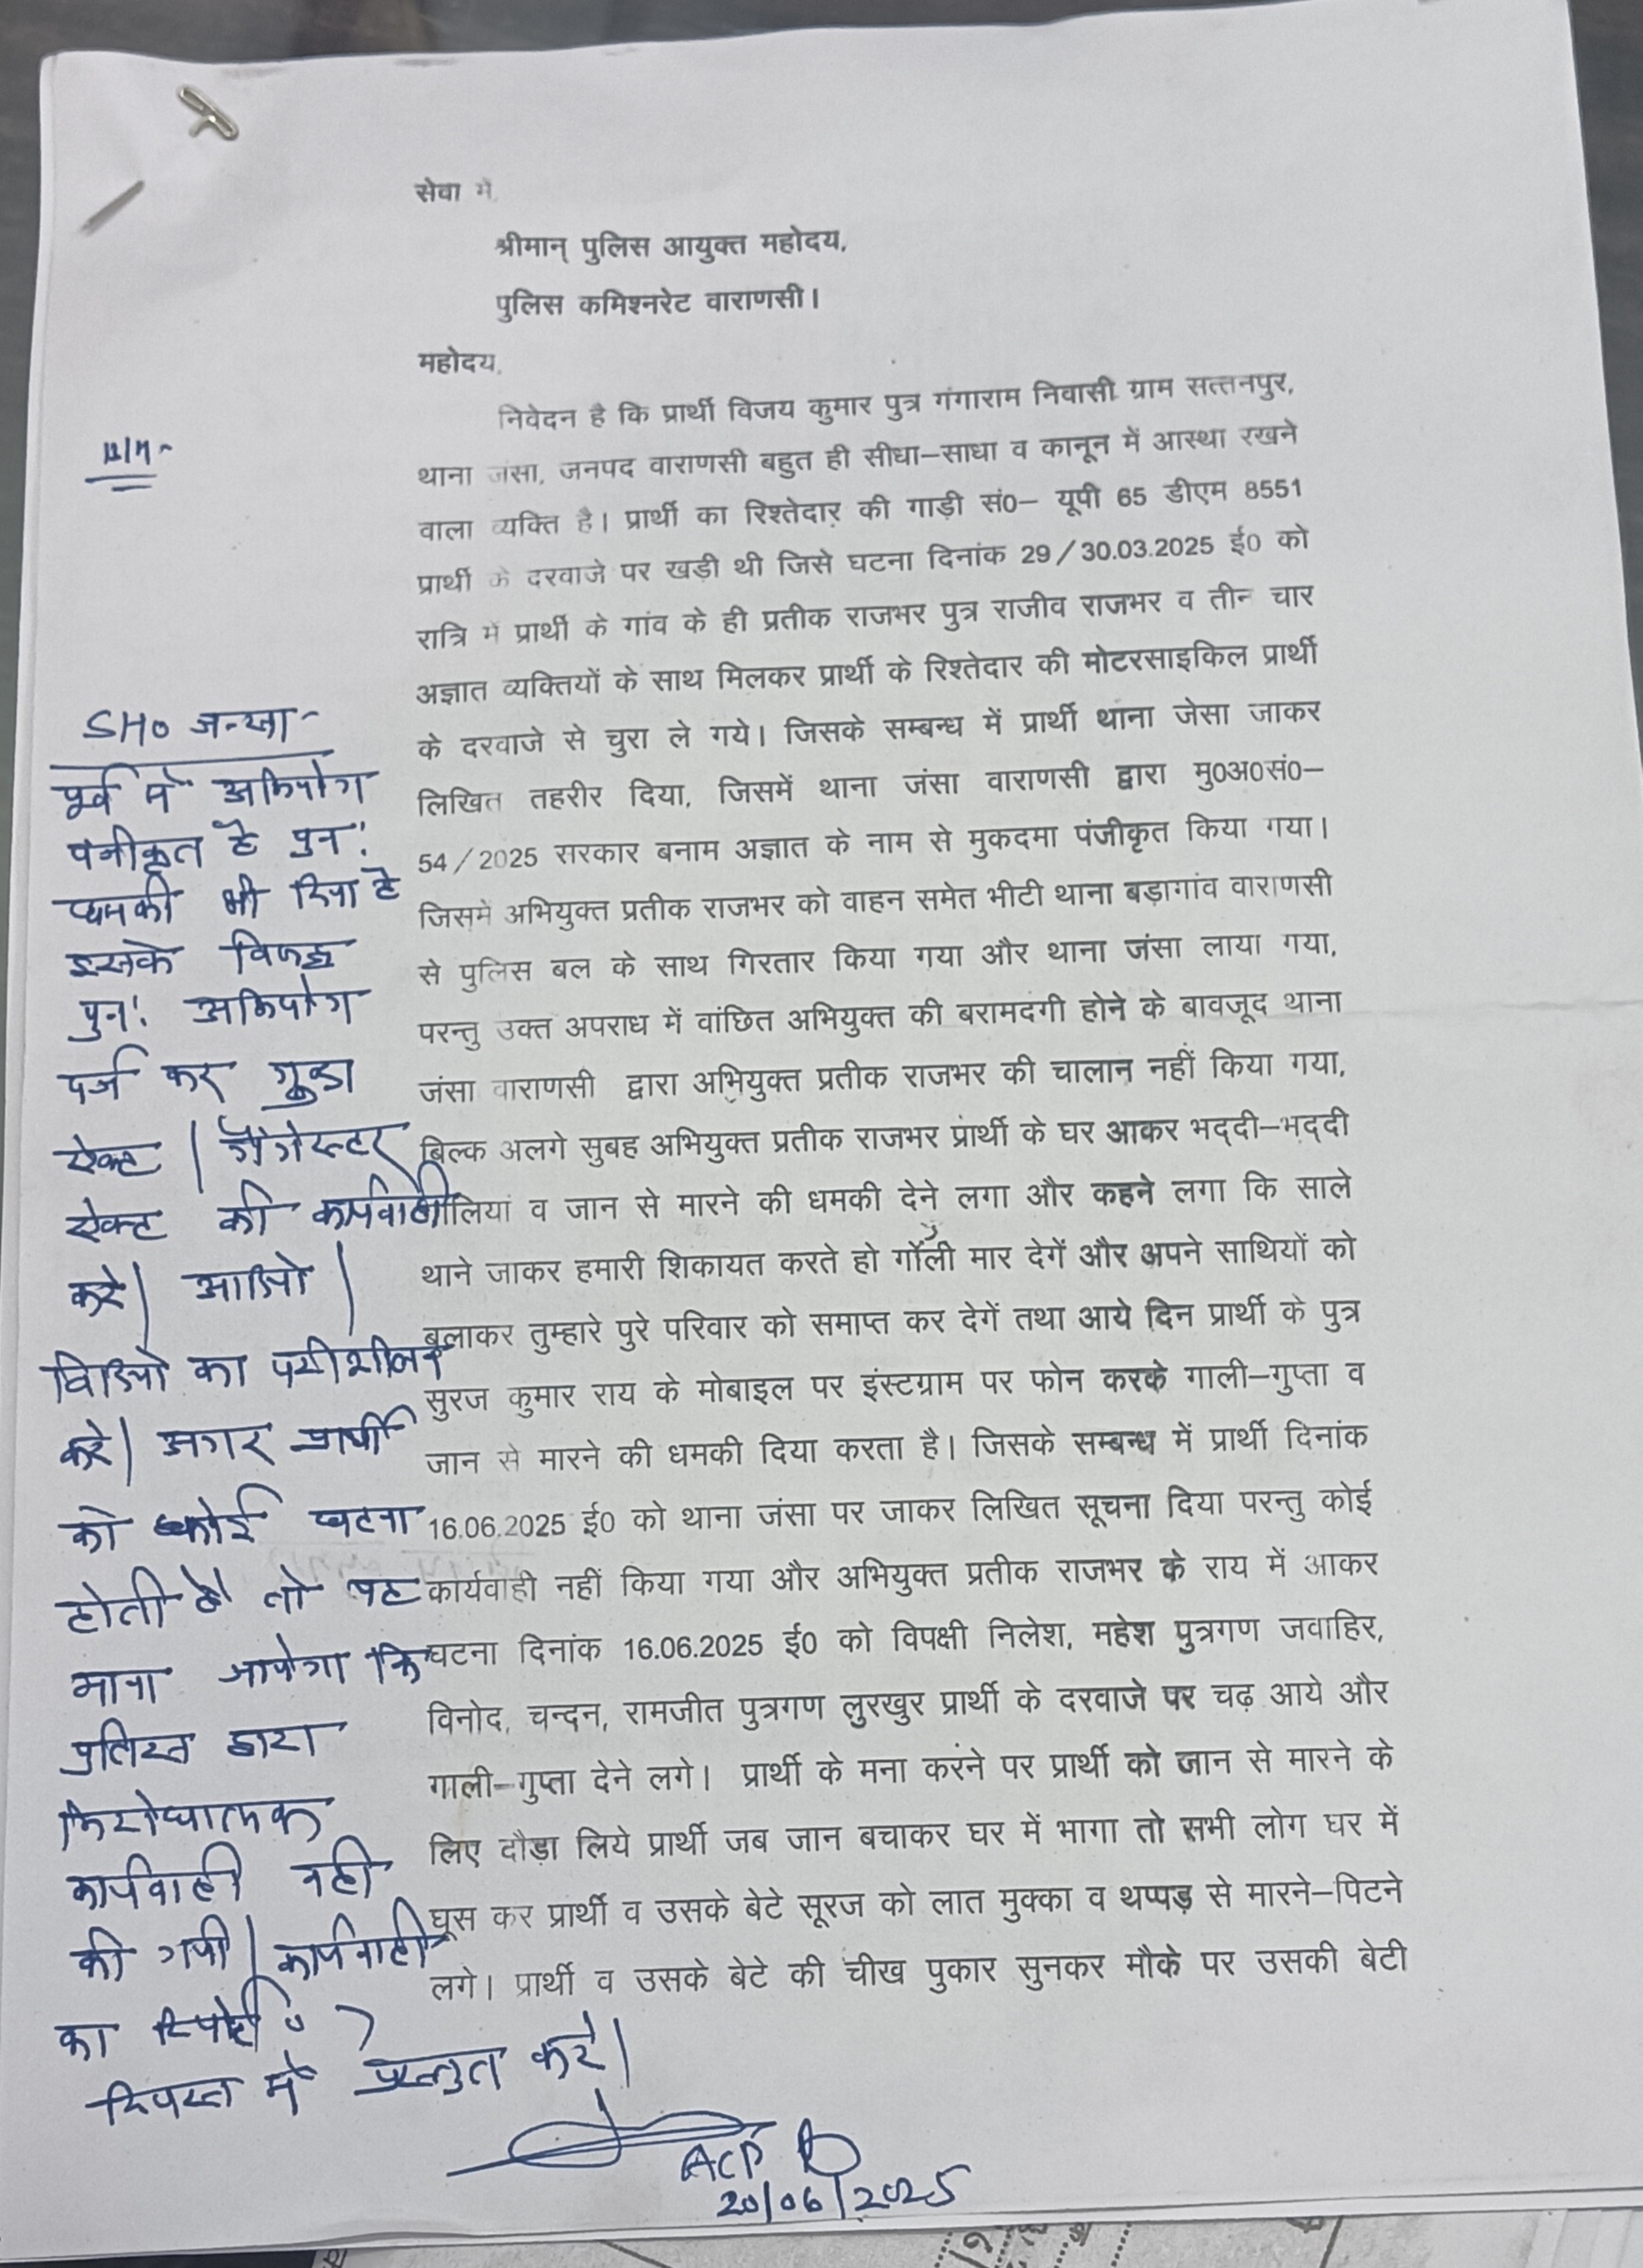 सेवा में,
श्रीमान् पुलिस आयुक्त महोदय,
पुलिस कमिश्नरेट वाराणसी।
महोदय,
निवेदन है कि प्रार्थी विजय कुमार पुत्र गंगाराम निवासी ग्राम सत्तनपुर,
थाना जंसा, जनपद वाराणसी बहुत ही सीधा–साधा व कानून में आस्था रखने
वाला व्यक्ति है। प्रार्थी का रिश्तेदार की गाड़ी सं0– यूपी 65 डीएम 8551
प्रार्थी के दरवाजे पर खड़ी थी जिसे घटना दिनांक 29/30.03.2025 ई0 को
रात्रि में प्रार्थी के गांव के ही प्रतीक राजभर पुत्र राजीव राजभर व तीन चार
अज्ञात व्यक्तियों के साथ मिलकर प्रार्थी के रिश्तेदार की मोटरसाइकिल प्रार्थी
के दरवाजे से चुरा ले गये। जिसके सम्बन्ध में प्रार्थी थाना जेसा जाकर
लिखित तहरीर दिया, जिसमें थाना जंसा वाराणसी द्वारा मु0अ0सं0–
54/2025 सरकार बनाम अज्ञात के नाम से मुकदमा पंजीकृत किया गया।
जिसमें अभियुक्त प्रतीक राजभर को वाहन समेत भीटी थाना बड़ागांव वाराणसी
से पुलिस बल के साथ गिरतार किया गया और थाना जंसा लाया गया,
परन्तु उक्त अपराध में वांछित अभियुक्त की बरामदगी होने के बावजूद थाना
जंसा वाराणसी द्वारा अभियुक्त प्रतीक राजभर की चालान नहीं किया गया,
बिल्क अलगे सुबह अभियुक्त प्रतीक राजभर प्रार्थी के घर आकर भद्दी–भद्दी
गालियां व जान से मारने की धमकी देने लगा और कहने लगा कि साले
थाने जाकर हमारी शिकायत करते हो गॉली मार देगें और अपने साथियों को
बुलाकर तुम्हारे पुरे परिवार को समाप्त कर देगें तथा आये दिन प्रार्थी के पुत्र
सुरज कुमार राय के मोबाइल पर इंस्टग्राम पर फोन करके गाली–गुप्ता व
जान से मारने की धमकी दिया करता है। जिसके सम्बन्ध में प्रार्थी दिनांक
16.06.2025 ई0 को थाना जंसा पर जाकर लिखित सूचना दिया परन्तु कोई
कार्यवाही नहीं किया गया और अभियुक्त प्रतीक राजभर के राय में आकर
घटना दिनांक 16.06.2025 ई0 को विपक्षी निलेश, महेश पुत्रगण जवाहिर,
विनोद, चन्दन, रामजीत पुत्रगण लुरखुर प्रार्थी के दरवाजे पर चढ़ आये और
गाली–गुप्ता देने लगे। प्रार्थी के मना करंने पर प्रार्थी को जान से मारने के
लिए दौड़ा लिये प्रार्थी जब जान बचाकर घर में भागा तो सभी लोग घर में
घूस कर प्रार्थी व उसके बेटे सूरज को लात मुक्का व थप्पड़ से मारने–पिटने
लगे। प्रार्थी व उसके बेटे की चीख पुकार सुनकर मौके पर उसकी बेटी
SHO जन्सा-
पूर्व मे अभियोग
पंजीकृत है पुन:
धमकी भी दिया है
इसके विरूद्ध
पुन: अभियोग
दर्ज कर गुण्डा
ऐक्ट / गैंगेस्टर
ऐक्ट की कार्यवाही
करे। आडियो /
विडियो का परीशीलन
करे। अगर प्रार्थी
को कोई घटना
होती है तो यह
माना जायेगा कि
पुलिस द्वारा
निरोधात्मक
कार्यवाही नही
की गयी। कार्यवाही
का रिपोर्ट
दिवस मे प्रस्तुत करे।
ACP
20/06/2025